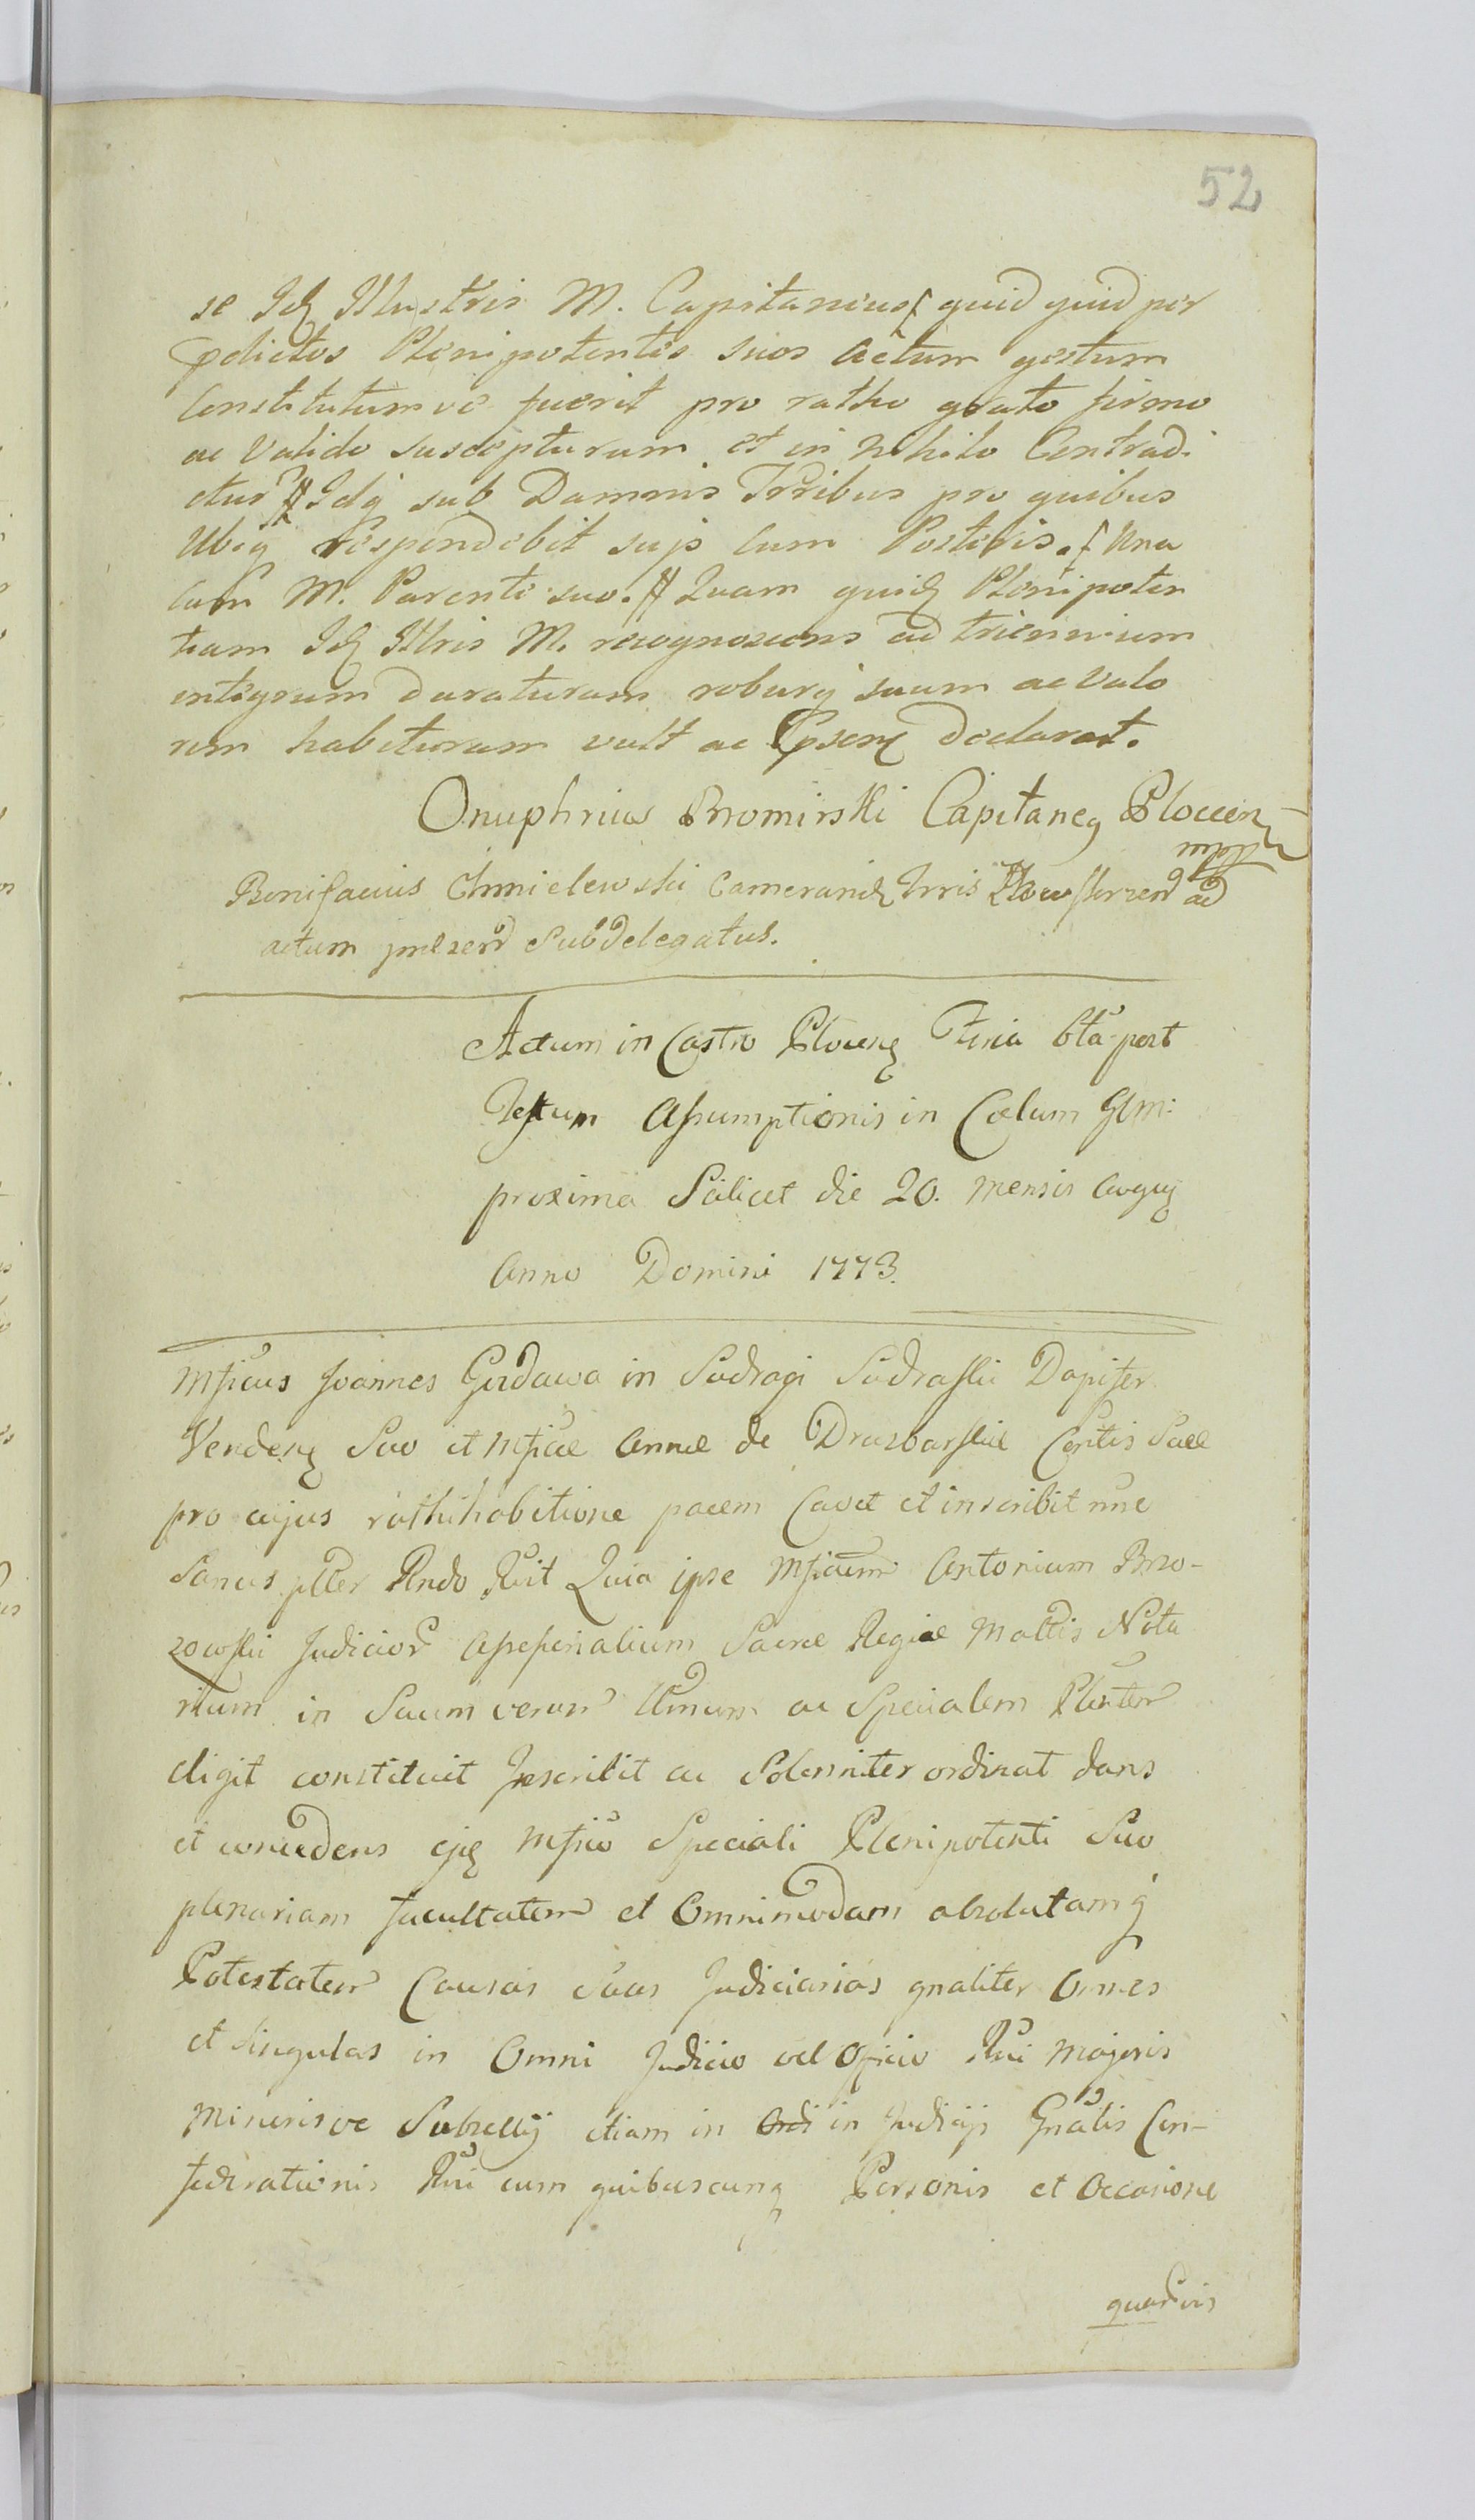 52
se Idq Illustris M. Capitaneus quid quid per
pdictos Plenipotentes suos actum gestum
Constitutumve fuerit pro ratho grato firmo
ac valido suscepturum et in nihilo Contradi
ctur Idq sub Damnis Trribus pro quibus
Ubiq respondebit suis cum Posteris. Una
cum M. Parente suo. Quam quidq Plenipoten
tiam Idq Illris M. recognoscens ad triennium
integrum duraturam roburq suum ac valo
rem habituram vult ac declarat.
Onuphrius Bromirski Capitaneq Plocen
mpp
Bonifacius Chmielewski Camerarius Trris ad
actum praesend Subdelegatus.
Actum in Castro Plocenq Feria 6ta post
Festum Assumptionis in Coelum
proxima Scilicet die 20. mensis Augq
Anno Domini 1773.
Mficus Joannes Gozdawa in Sudragi Sudraski Dapifer
Vendenq Suo et Mficae Annae de Drozdowskie Contis Suae
pro cujus rathihabitione pacem Cavet et inscribit nne
Sanus ptter Rndo Rvit Quia ipse Mficum Antonium Brzo-
zowski Judicior Assessorialium Sacrae Regiae Mattis Nota
rium in Suum verum Umum ac Specialem Plenten
eligit constituit Inscribit ac Solenniter ordinat dans
et concedens ejq Mfico Speciali Plenipotenti Suo
plenariam facultatem et Omnimodam absolutamq
Potestatem Causas Suas Judiciarias gnaliter Omnes
et singulas in Omni Judicio vel Officio Rni Majoris
Minorisve Subselly etiam in Ordi in Judicijs Gnalis Con-
federationis Rni cum quibuscunq Personis et Occasione
quarvis